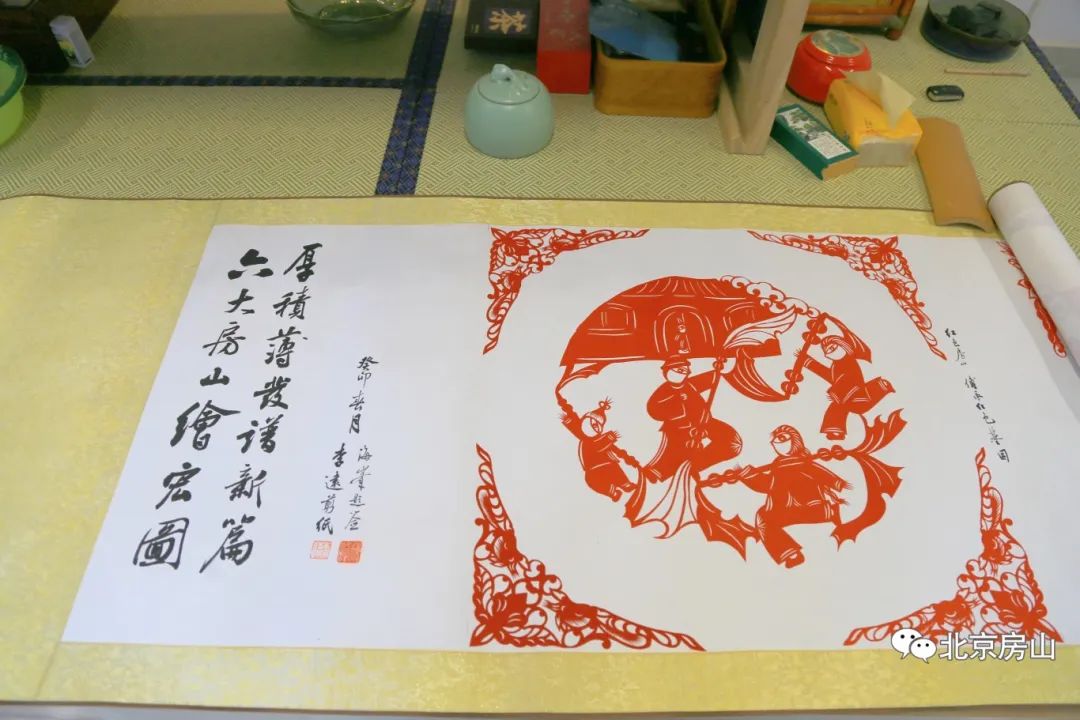 茶
红色房山 传承红色基因
厚積薄發譜新篇
六大房山繪宏圖
癸卯春月
李遠剪紙
北京房山